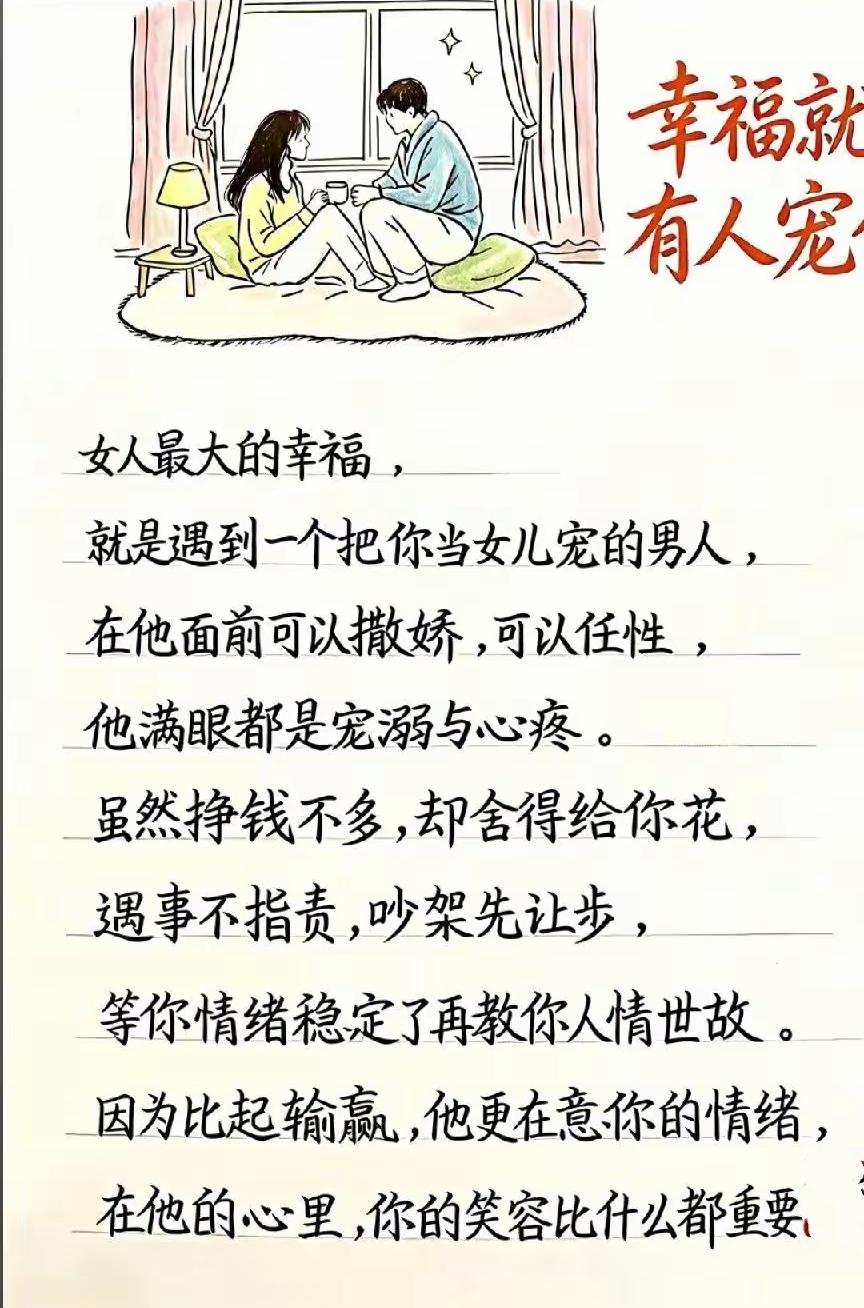 幸福就
有人宠
女人最大的幸福，
就是遇到一个把你当女儿宠的男人，
在他面前可以撒娇，可以任性，
他满眼都是宠溺与心疼。
虽然挣钱不多，却舍得给你花，
遇事不指责，吵架先让步，
等你情绪稳定了再教你人情世故。
因为比起输赢，他更在意你的情绪，
在他的心里，你的笑容比什么都重要